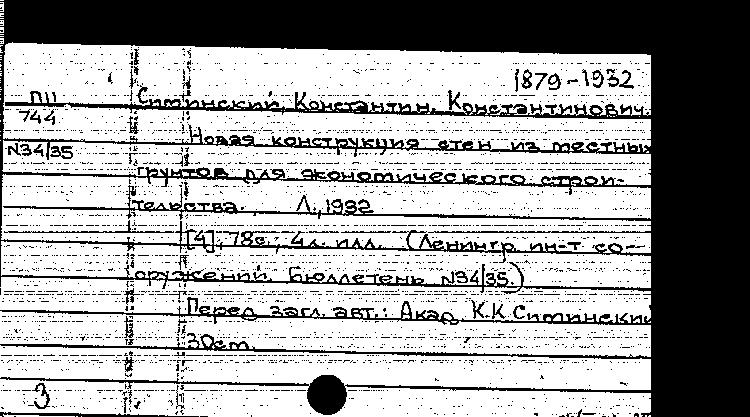 1879-1932
ПII Симинский, Константин Константинович.
744
Новая конструкция стен из местных
N34/35
грунтов для экономического строи-
тельства. Л., 1932
[4], 78с.; 4л. илл. (Ленингр. ин-т со-
оружений. Бюллетень N34/35.)
Перед загл. авт.: Акад. К.К. Симинский
30см.
3